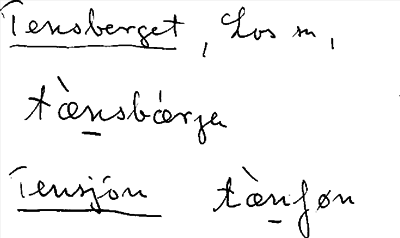 Tensberget, Los m,
tæ̀nsbǽrje
Tensjön tæ̀nʃøn